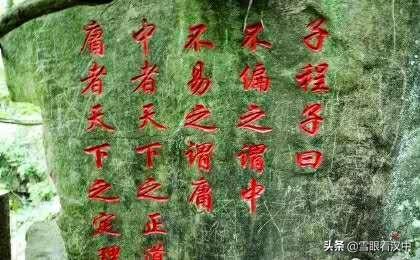 子程子曰
不偏之謂中
不易之謂庸
中者天下之正道
庸者天下之定理
头条 @雪眼看汉中